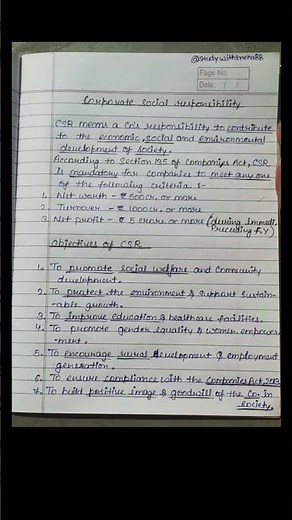 @studywithsneha88
Page No:
Date: / /
Corporate social responsibility
CSR means a Co's responsibility to contribute
to the economic, social and environmental
development of society.
According to Section 135 of Companies Act, CSR
is mandatory for companies to meet any one
of the following criteria :-
1. Net worth - ₹ 500 cr. or more
2. Turnover - ₹ 1000 cr. or more
3. Net profit - ₹ 5 crore or more (during Immedi.
Preceding F.Y)
Objectives of CSR
1. To promote social welfare and Community
development.
2. To protect the environment & support sustain-
-able growth.
3. To improve education & healthcare facilities.
4. To promote gender equality & women empower-
-ment.
5. To encourage rural development & employment
generation.
6. To ensure compliance with the Companies Act, 2013
7. To build positive image & goodwill of the Co. in
society.